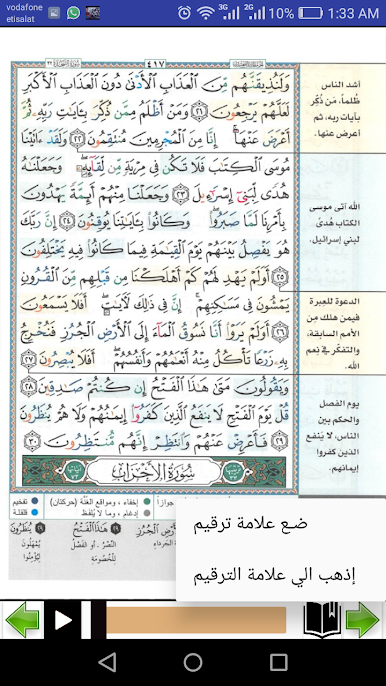 vodafone
etisalat
3G
2G
10%
1:33 AM
٤١٧
وَلَنُذِيقَنَّهُم مِّنَ ٱلْعَذَابِ ٱلْأَدْنَىٰ دُونَ ٱلْعَذَابِ ٱلْأَكْبَرِ
لَعَلَّهُمْ يَرْجِعُونَ ٢١ وَمَنْ أَظْلَمُ مِمَّن ذُكِّرَ بِـَٔايَٰتِ رَبِّهِۦ ثُمَّ
أَعْرَضَ عَنْهَآ إِنَّا مِنَ ٱلْمُجْرِمِينَ مُنتَقِمُونَ ٢٢ وَلَقَدْ ءَاتَيْنَا
مُوسَى ٱلْكِتَٰبَ فَلَا تَكُن فِى مِرْيَةٍ مِّن لِّقَآئِهِۦ وَجَعَلْنَٰهُ
هُدًى لِّبَنِىٓ إِسْرَٰٓءِيلَ ٢٣ وَجَعَلْنَا مِنْهُمْ أَئِمَّةً يَهْدُونَ
بِأَمْرِنَا لَمَّا صَبَرُوا۟ وَكَانُوا۟ بِـَٔايَٰتِنَا يُوقِنُونَ ٢٤ إِنَّ رَبَّكَ
هُوَ يَفْصِلُ بَيْنَهُمْ يَوْمَ ٱلْقِيَٰمَةِ فِيمَا كَانُوا۟ فِيهِ يَخْتَلِفُونَ
٢٥ أَوَلَمْ يَهْدِ لَهُمْ كَمْ أَهْلَكْنَا مِن قَبْلِهِم مِّنَ ٱلْقُرُونِ
يَمْشُونَ فِى مَسَٰكِنِهِمْ إِنَّ فِى ذَٰلِكَ لَـَٔايَٰتٍ أَفَلَا يَسْمَعُونَ
٢٦ أَوَلَمْ يَرَوْا۟ أَنَّا نَسُوقُ ٱلْمَآءَ إِلَى ٱلْأَرْضِ ٱلْجُرُزِ فَنُخْرِجُ
بِهِۦ زَرْعًا تَأْكُلُ مِنْهُ أَنْعَٰمُهُمْ وَأَنفُسُهُمْ أَفَلَا يُبْصِرُونَ ٢٧
وَيَقُولُونَ مَتَىٰ هَٰذَا ٱلْفَتْحُ إِن كُنتُمْ صَٰدِقِينَ ٢٨
قُلْ يَوْمَ ٱلْفَتْحِ لَا يَنفَعُ ٱلَّذِينَ كَفَرُوٓا۟ إِيمَٰنُهُمْ وَلَا هُمْ يُنظَرُونَ
٢٩ فَأَعْرِضْ عَنْهُمْ وَٱنتَظِرْ إِنَّهُم مُّنتَظِرُونَ ٣٠
سُورَةُ الأَحْزَابِ
أشد الناس
ظلماً، مَن ذُكِّر
بآيات ربه، ثم
أعرض عنها.
الله آتى موسى
الكتاب هُدىً
لبني إسرائيل.
الدعوة للعبرة
فيمن هلك من
الأمم السابقة،
والتفكّر في نِعم
الله.
يوم الفصل
والحكم بين
الناس، لا ينفع
الذين كفروا
إيمانهم.
تفخيم
إخفاء، ومواقع الغُنَّة (حركتان)
جوازاً
قلقلة
إدغام، وما لا يُلفَظ
الأَرْضِ الْجُرُزِ
هَذَا الْفَتْحُ
يُنظَرُونَ
النَّصْرُ، أو الفَصْلُ
يُمْهَلُونَ
لِلْخُصُومَةِ
لِيُؤْمِنُوا
ضع علامة ترقيم
إذهب الي علامة الترقيم